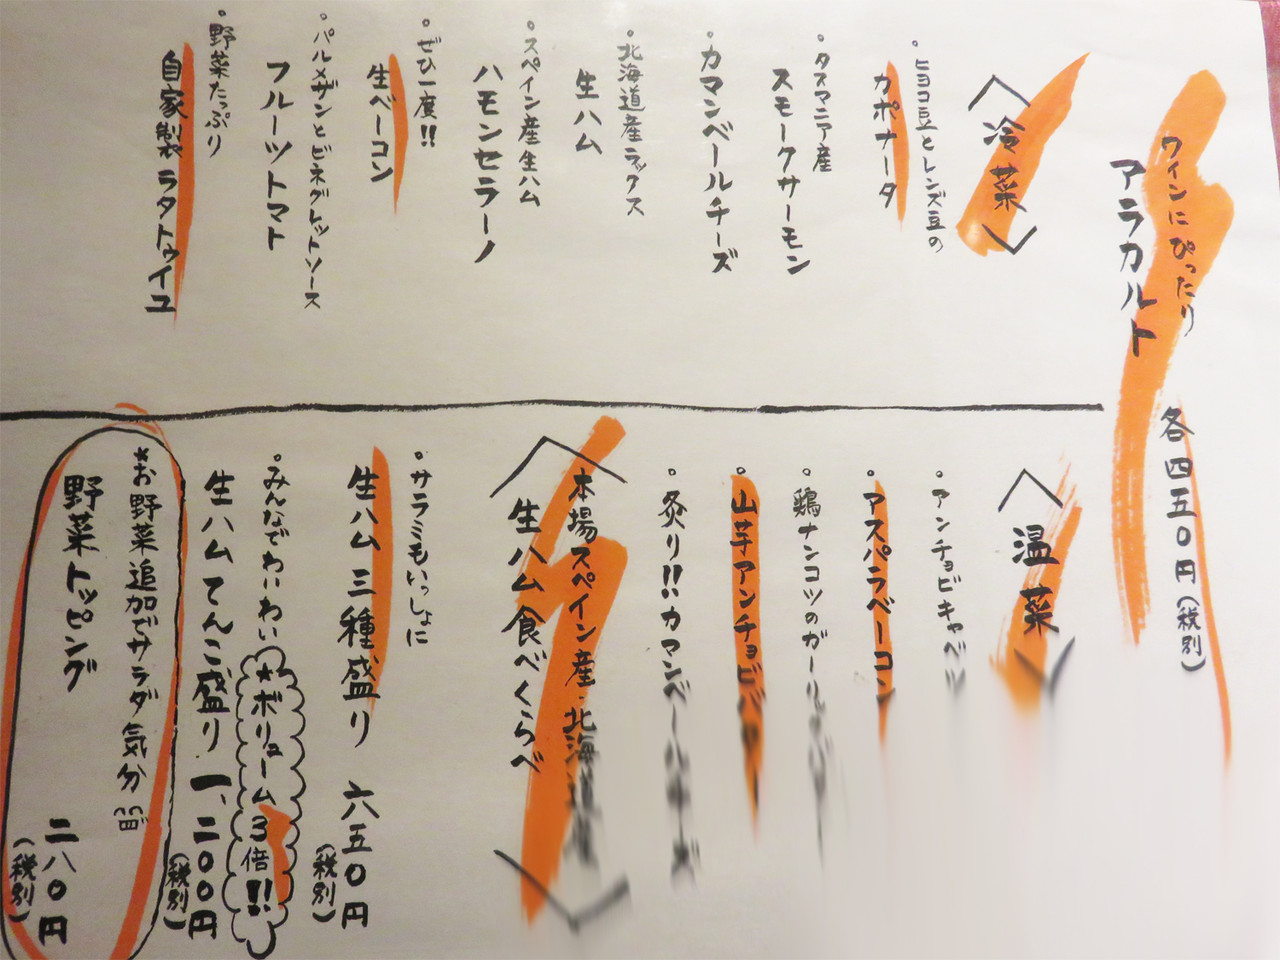 ワインにぴったり
アラカルト
各四五〇円(税別)
〈冷菜〉
・ヒヨコ豆とレンズ豆の
カポナータ
・タスマニア産
スモークサーモン
・カマンベールチーズ
・北海道産ラックス
生ハム
・スペイン産生ハム
ハモンセラーノ
・ぜひ一度!!
生ベーコン
・パルメザンとビネグレットソース
フルーツトマト
・野菜たっぷり
自家製ラタトゥイユ
〈温菜〉
・アンチョビキャベツ
・アスパラベーコン
・鶏ナンコツのガーリック
・山芋アンチョビバター
・炙り!!カマンベールチーズ
〈本場スペイン産・北海道産
生ハム食べくらべ〉
・サラミもいっしょに
生ハム三種盛り 六五〇円
(税別)
・みんなでわいわい★ボリューム3倍!!
生ハムてんこ盛り 一、二〇〇円
(税別)
*お野菜追加でサラダ気分
野菜トッピング 二八〇円
(税別)